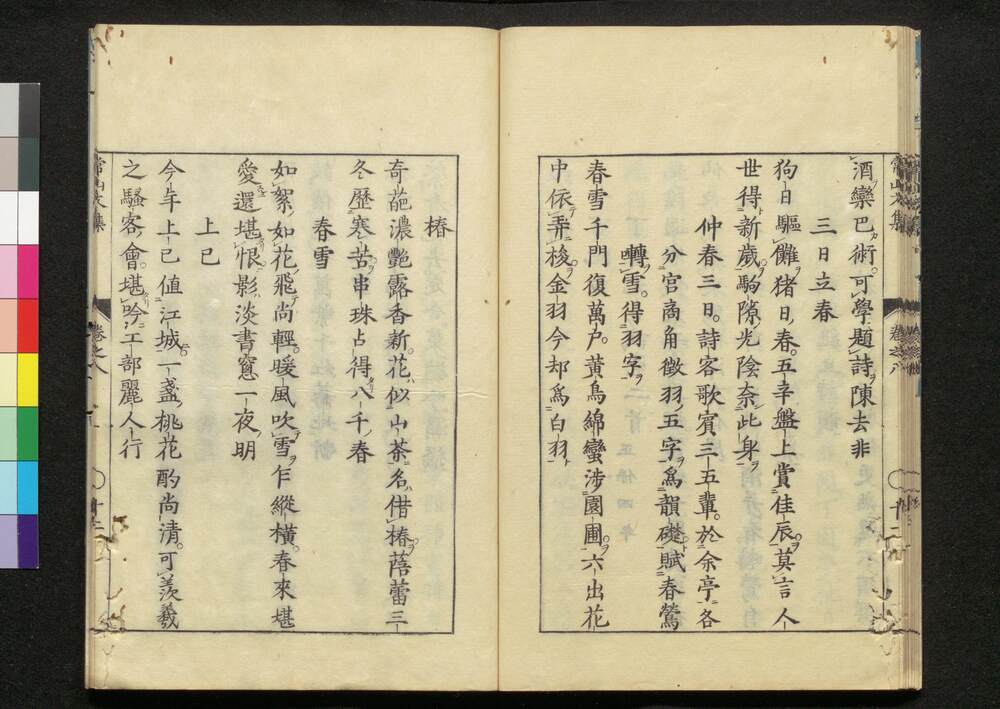 酒欒巴術可學題詩陳去非
三日立春
狗日驅儺猪日春五辛盤上賞佳辰莫言人
世得新歲駒隙光陰奈此身
仲春三日詩客歌賓三五輩於余亭各
分宮商角徵羽五字爲韻礎賦春鶯
囀雪得羽字
春雪千門復萬戶黃鳥綿蠻涉園圃六出花
中依弄梭金羽今却爲白羽
椿
奇葩濃艷露香新花似山茶名借椿蓓蕾三
冬歷寒苦串珠占得八千春
春雪
如絮如花飛尚輕暖風吹雪乍縱橫春來堪
愛還堪恨影淡書窓一夜明
上巳
今年上巳値江城一盞桃花酌尚清可羨羲
之騷客會堪吟工部麗人行
常山文集
卷之八
十二